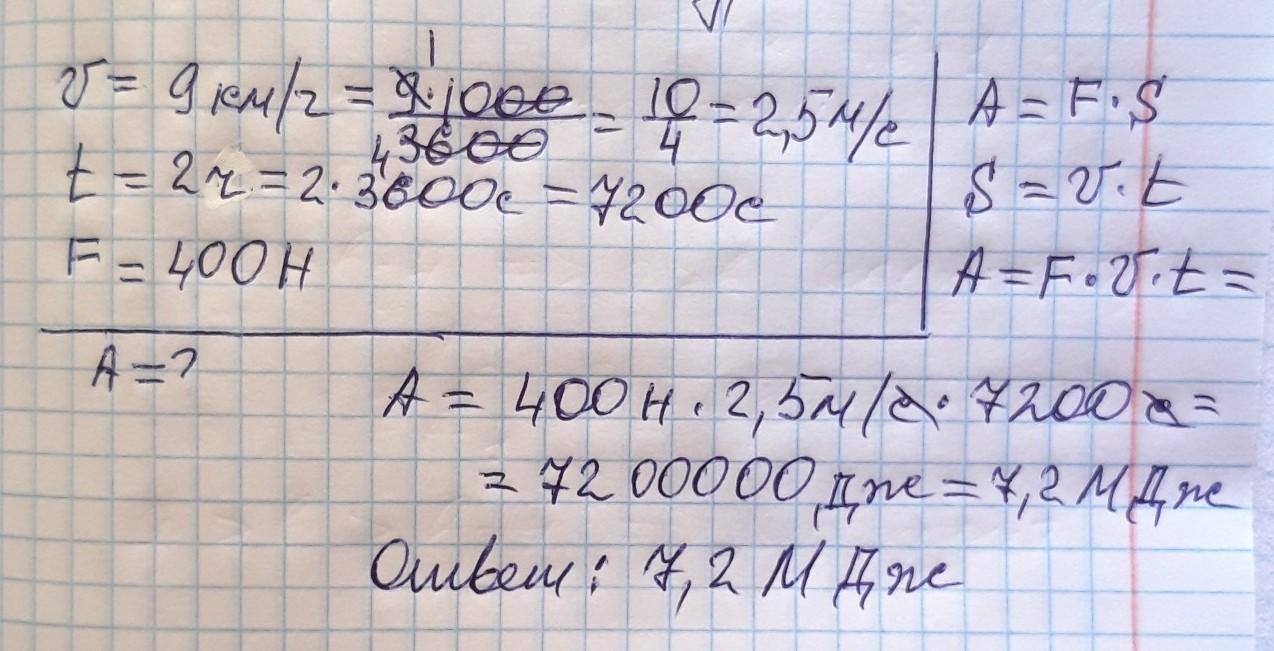 v = 9 км/ч = 9·1000/3600 = 10/4 = 2,5 м/с
t = 2 ч = 2·3600с = 7200с
F = 400 Н
A = ?
A = F·S
S = v·t
A = F·v·t =
A = 400 Н · 2,5 м/с · 7200 с =
= 7200000 Дж = 7,2 МДж
Ответ: 7,2 МДж